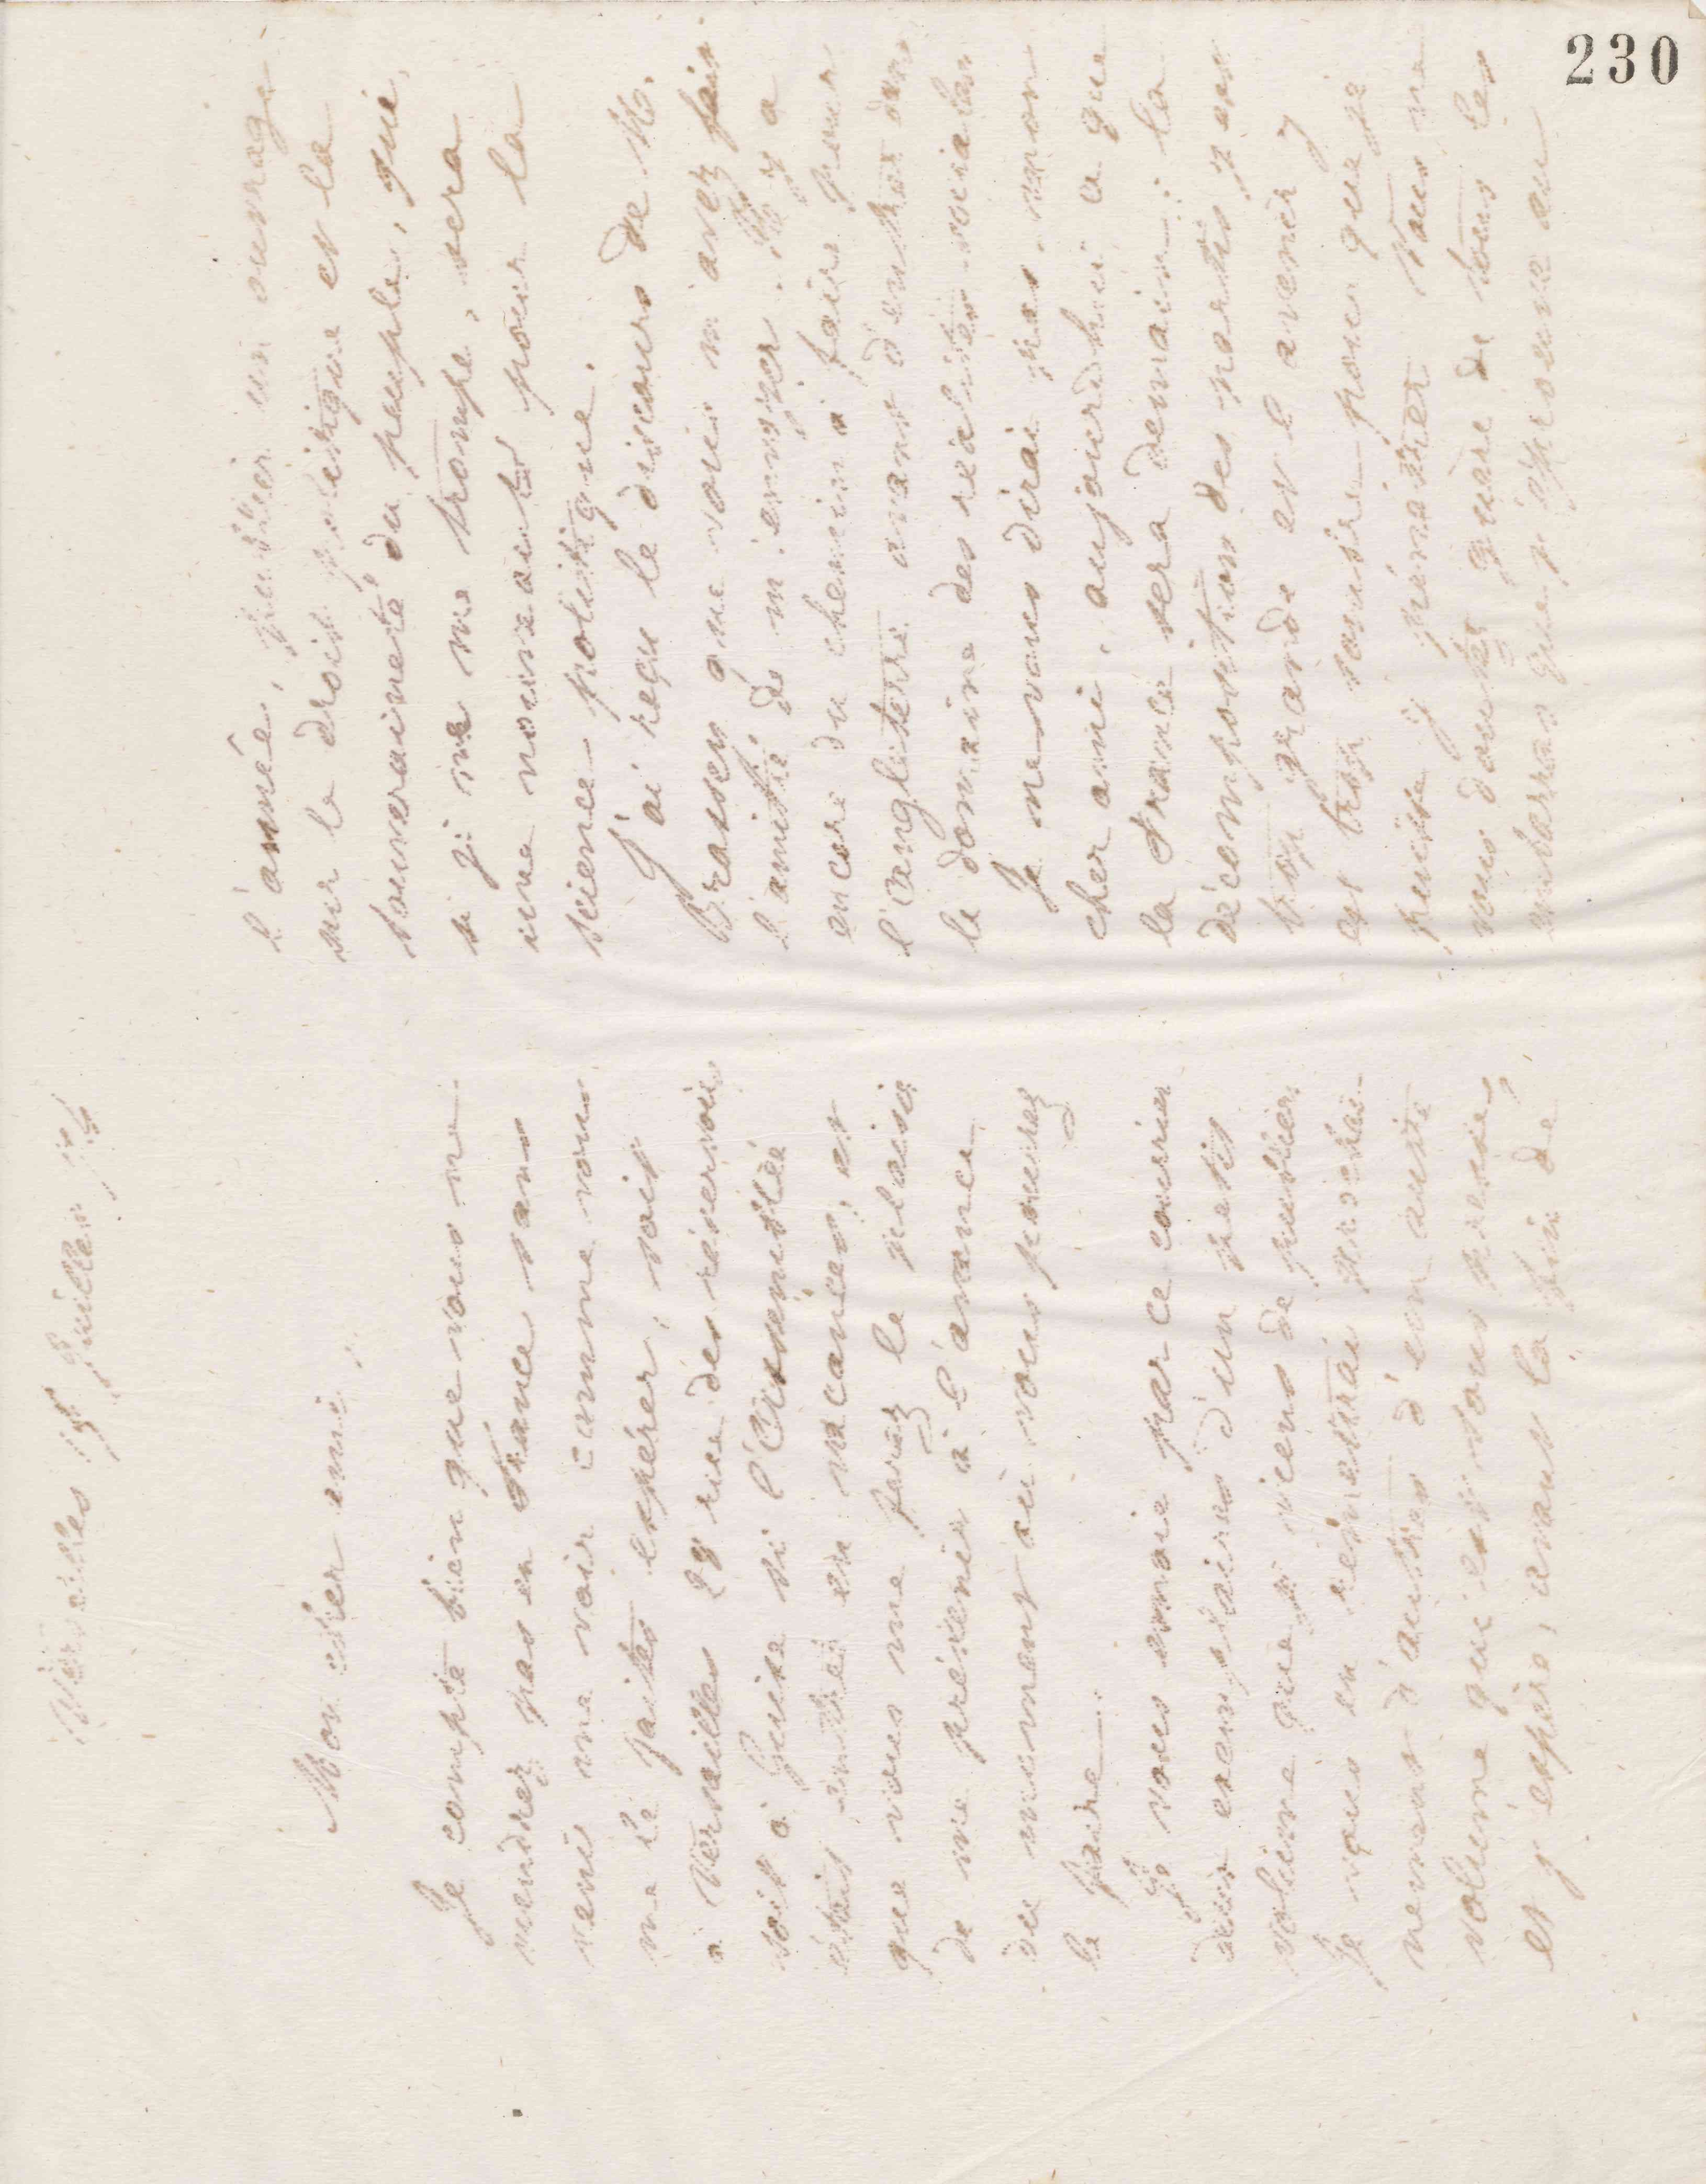 230
Versailles 15 Juillet 74
Mon cher ami,
Je compte bien que vous ne
viendrez pas en France sans
venir me voir comme vous
me le faites espérer, soit
à Versailles 28 rue des réservoirs
soit à Guise si l'Assemblée
était entrée en vacances, et
que vous me ferez le plaisir
de me prévenir à l'avance
du moment où vous pourrez
le faire.
Je vous envoie par ce courrier
deux exemplaires d'un petit
volume que je viens de publier
Je vous en remettrai prochai-
nement d'autres d'un autre
volume qui est sous presse,
et j'espère, avant la fin de
l'année, publier un ouvrage
sur le droit politique et la
souveraineté du peuple, qui,
si je ne me trompe, sera
une nouveauté pour la
science politique.
J'ai reçu le discours de M.
Brassey que vous m'avez fait
l'amitié de m'envoyer. Il y a
encore du chemin à faire pour
l'angleterre avant d'entrer dans
le domaine des réalités sociales
Je ne vous dirai pas, mon
cher ami, aujourd'hui ce que
la France sera demain : la
décomposition des partis y est
trop grande et l'avenir y
est trop sombre pour que je
puisse y pénétrer Vous ne
vous doutez guère de tous les
embarras que j'éprouve au